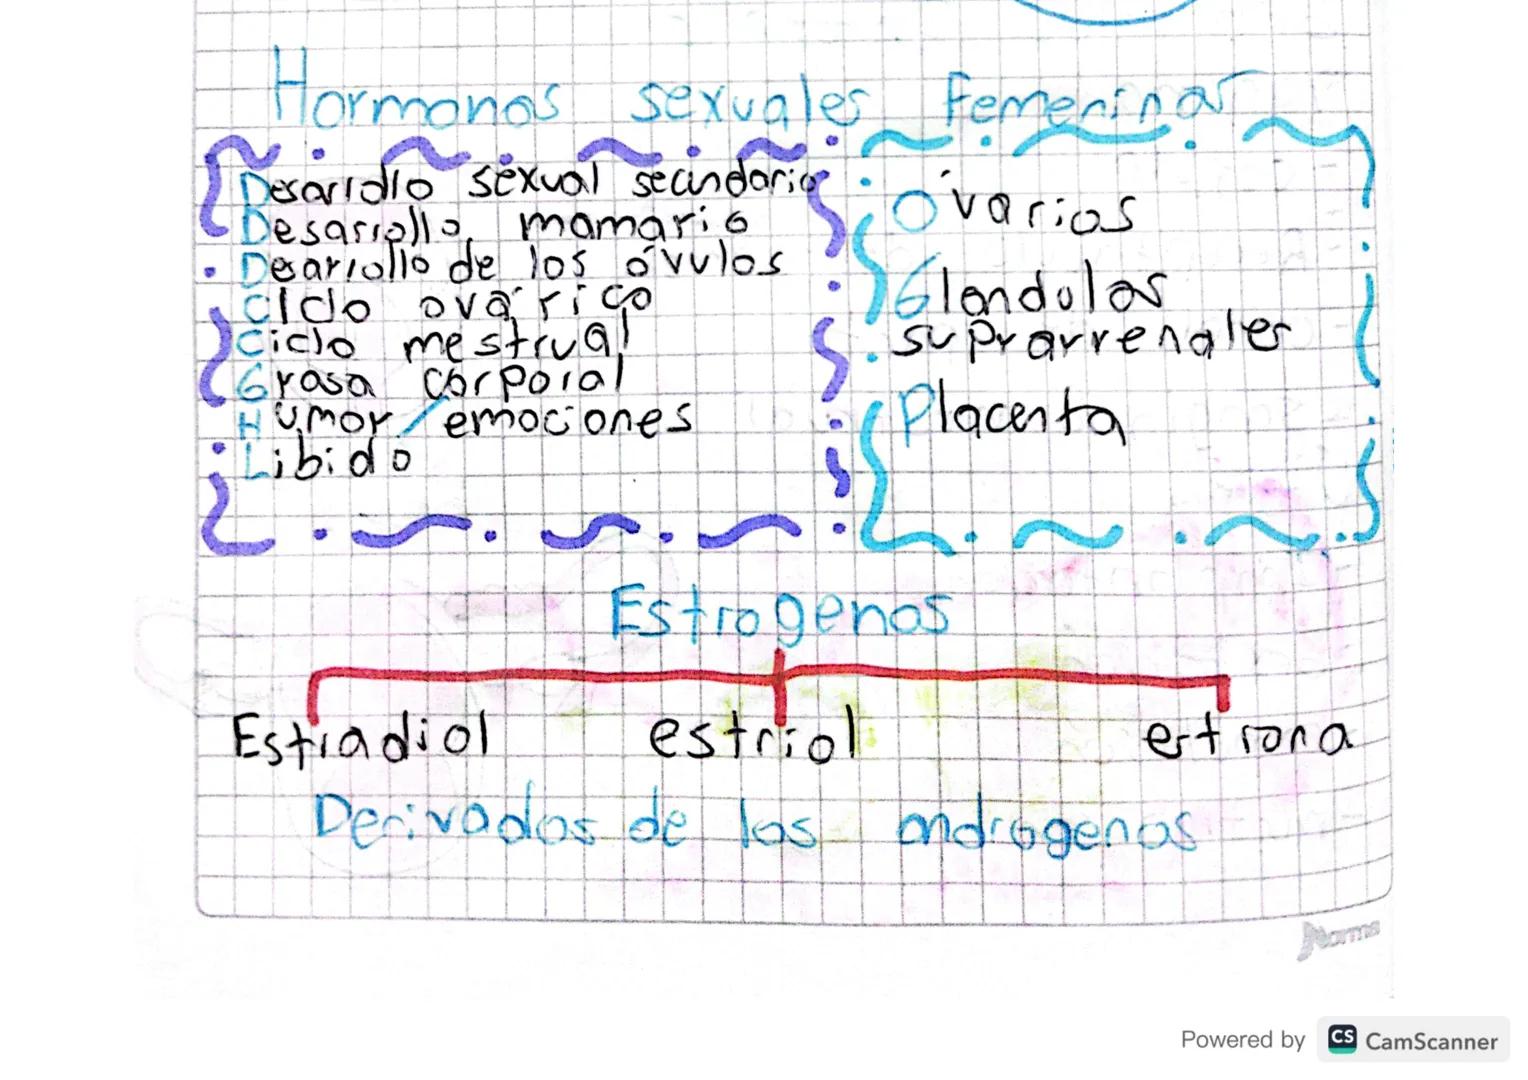 Hormonas sexuales femeninas
Desarrollo sexual secundario
Desarrollo mamario
Desarrollo de los óvulos
Ciclo ovárico
Ciclo mestrual
Grasa corporal
Humor/emociones
Libido
Óvarios
Glandulas
suprarrenales
Placenta
Estrogenos
Estradiol estriol estrona
Derivados de los androgenos
Norma
Powered by CS CamScanner